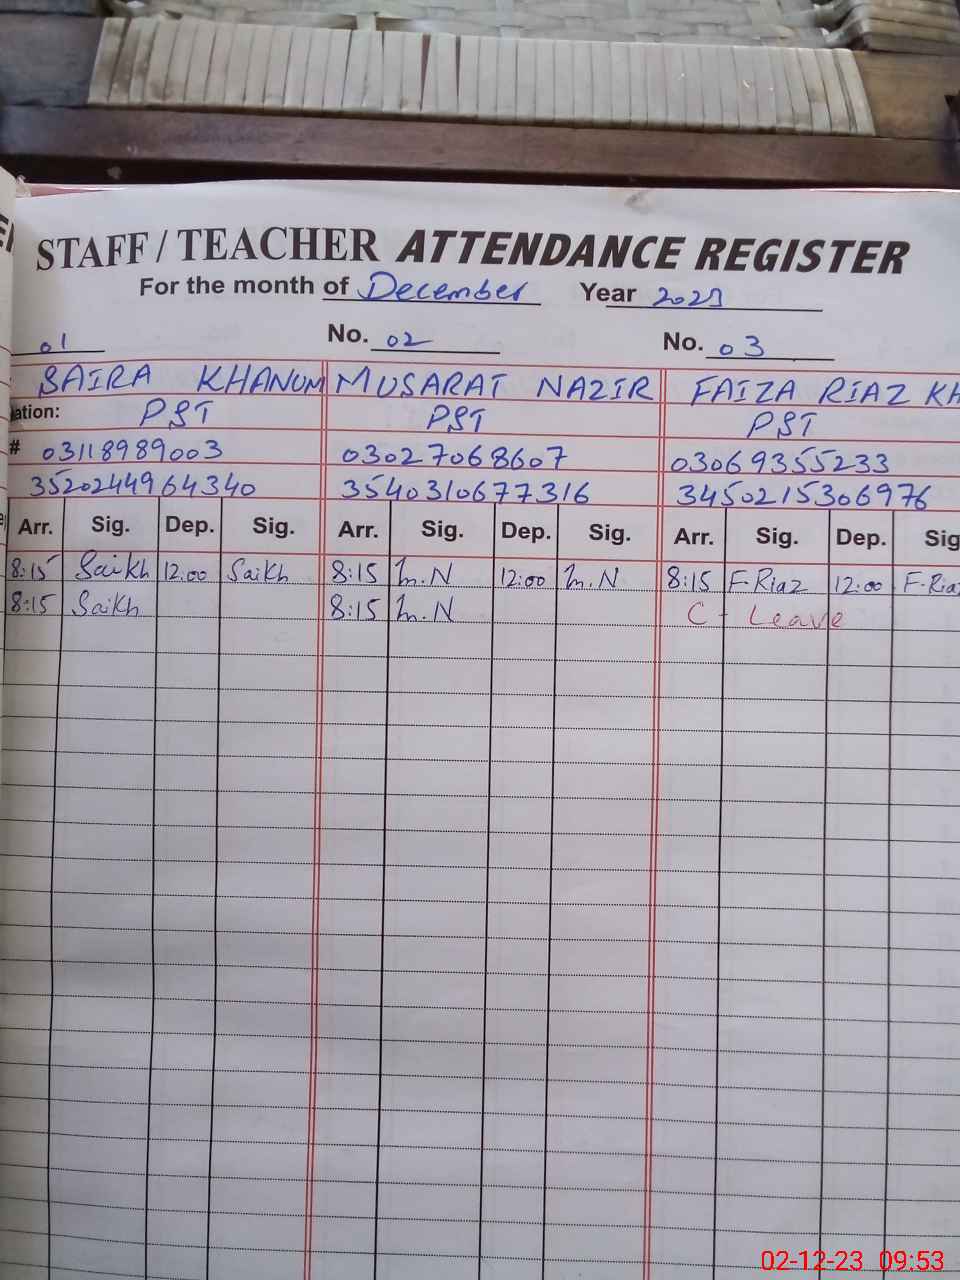 STAFF / TEACHER ATTENDANCE REGISTER
For the month of December Year 2023
01 No. 02 No. 03
SAIRA KHANUM MUSARAT NAZIR FAIZA RIAZ KH
ation: PST PST PST
# 03118989003 03027068607 03069355233
3520244964340 3540310677316 3450215306976
Arr. Sig. Dep. Sig. Arr. Sig. Dep. Sig. Arr. Sig. Dep. Sig
8:15 Saikh 12:00 Saikh 8:15 M.N 12:00 M.N 8:15 F.Riaz 12:00 F.Riaz
8:15 Saikh 8:15 M.N C - Leave
02-12-23 09:53